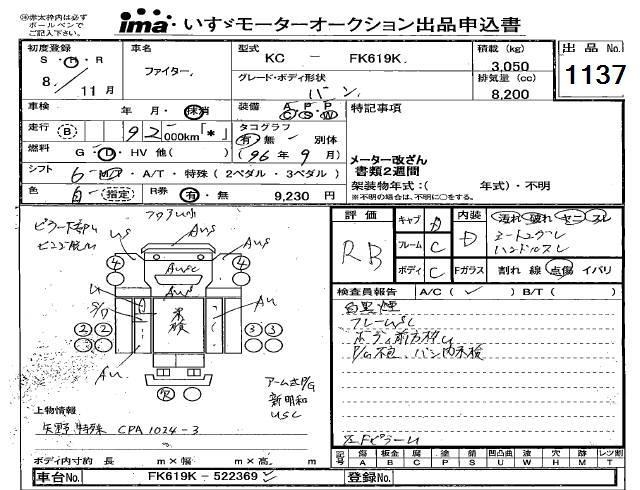 ㊟赤太枠内は必ず
ボールペンで
ご記入下さい。
ima いすゞモーターオークション出品申込書
初度登録
S・H・R
8. 11月
車名
ファイター
型式
KC - FK619K
グレード・ボディ形状
バン
積載 (kg)
3,050
排気量 (cc)
8,200
出品No.
1137
車検
年 月・抹消
装備
A P P
C S W
特記事項
走行
B 92 000km「*」
タコグラフ
有 無 別体
(96年9月)
燃料
G・D・HV 他( )
メーター改ざん
書類2週間
シフト
6 MT・A/T・特殊(2ペダル・3ペダル)
架装物年式:( 年式)・不明
※不明の場合は、不明に〇をする。
色
白 指定
R券
有・無 9,230 円
評価
RB
キャブ A
フレーム C
ボディ C
内装
D
汚れ 破れ ヤニ スレ
シートコゲ、シ
ハンドルスレ
Fガラス
割れ 線 点傷 イバリ
検査員報告 A/C( ✓ ) B/T( )
白黒煙
フレームSC
ボディ前方枠U
P/G不良、バン内未検
左FピラーU
AUS
US
AUSC
AU
S/ワ
A
未検
4 4
2 2 3 3
アームさP/G
新明和
USC
上物情報
矢野特殊 CPA1024-3
ボディ内寸約 長 m×幅 m×高 m
記号
傷 板金 腐 塗 錆 凹凸曲 波 穴 跡 レツ割
A B C P S U W H M T
車台No. FK619K - 522369
登録No.